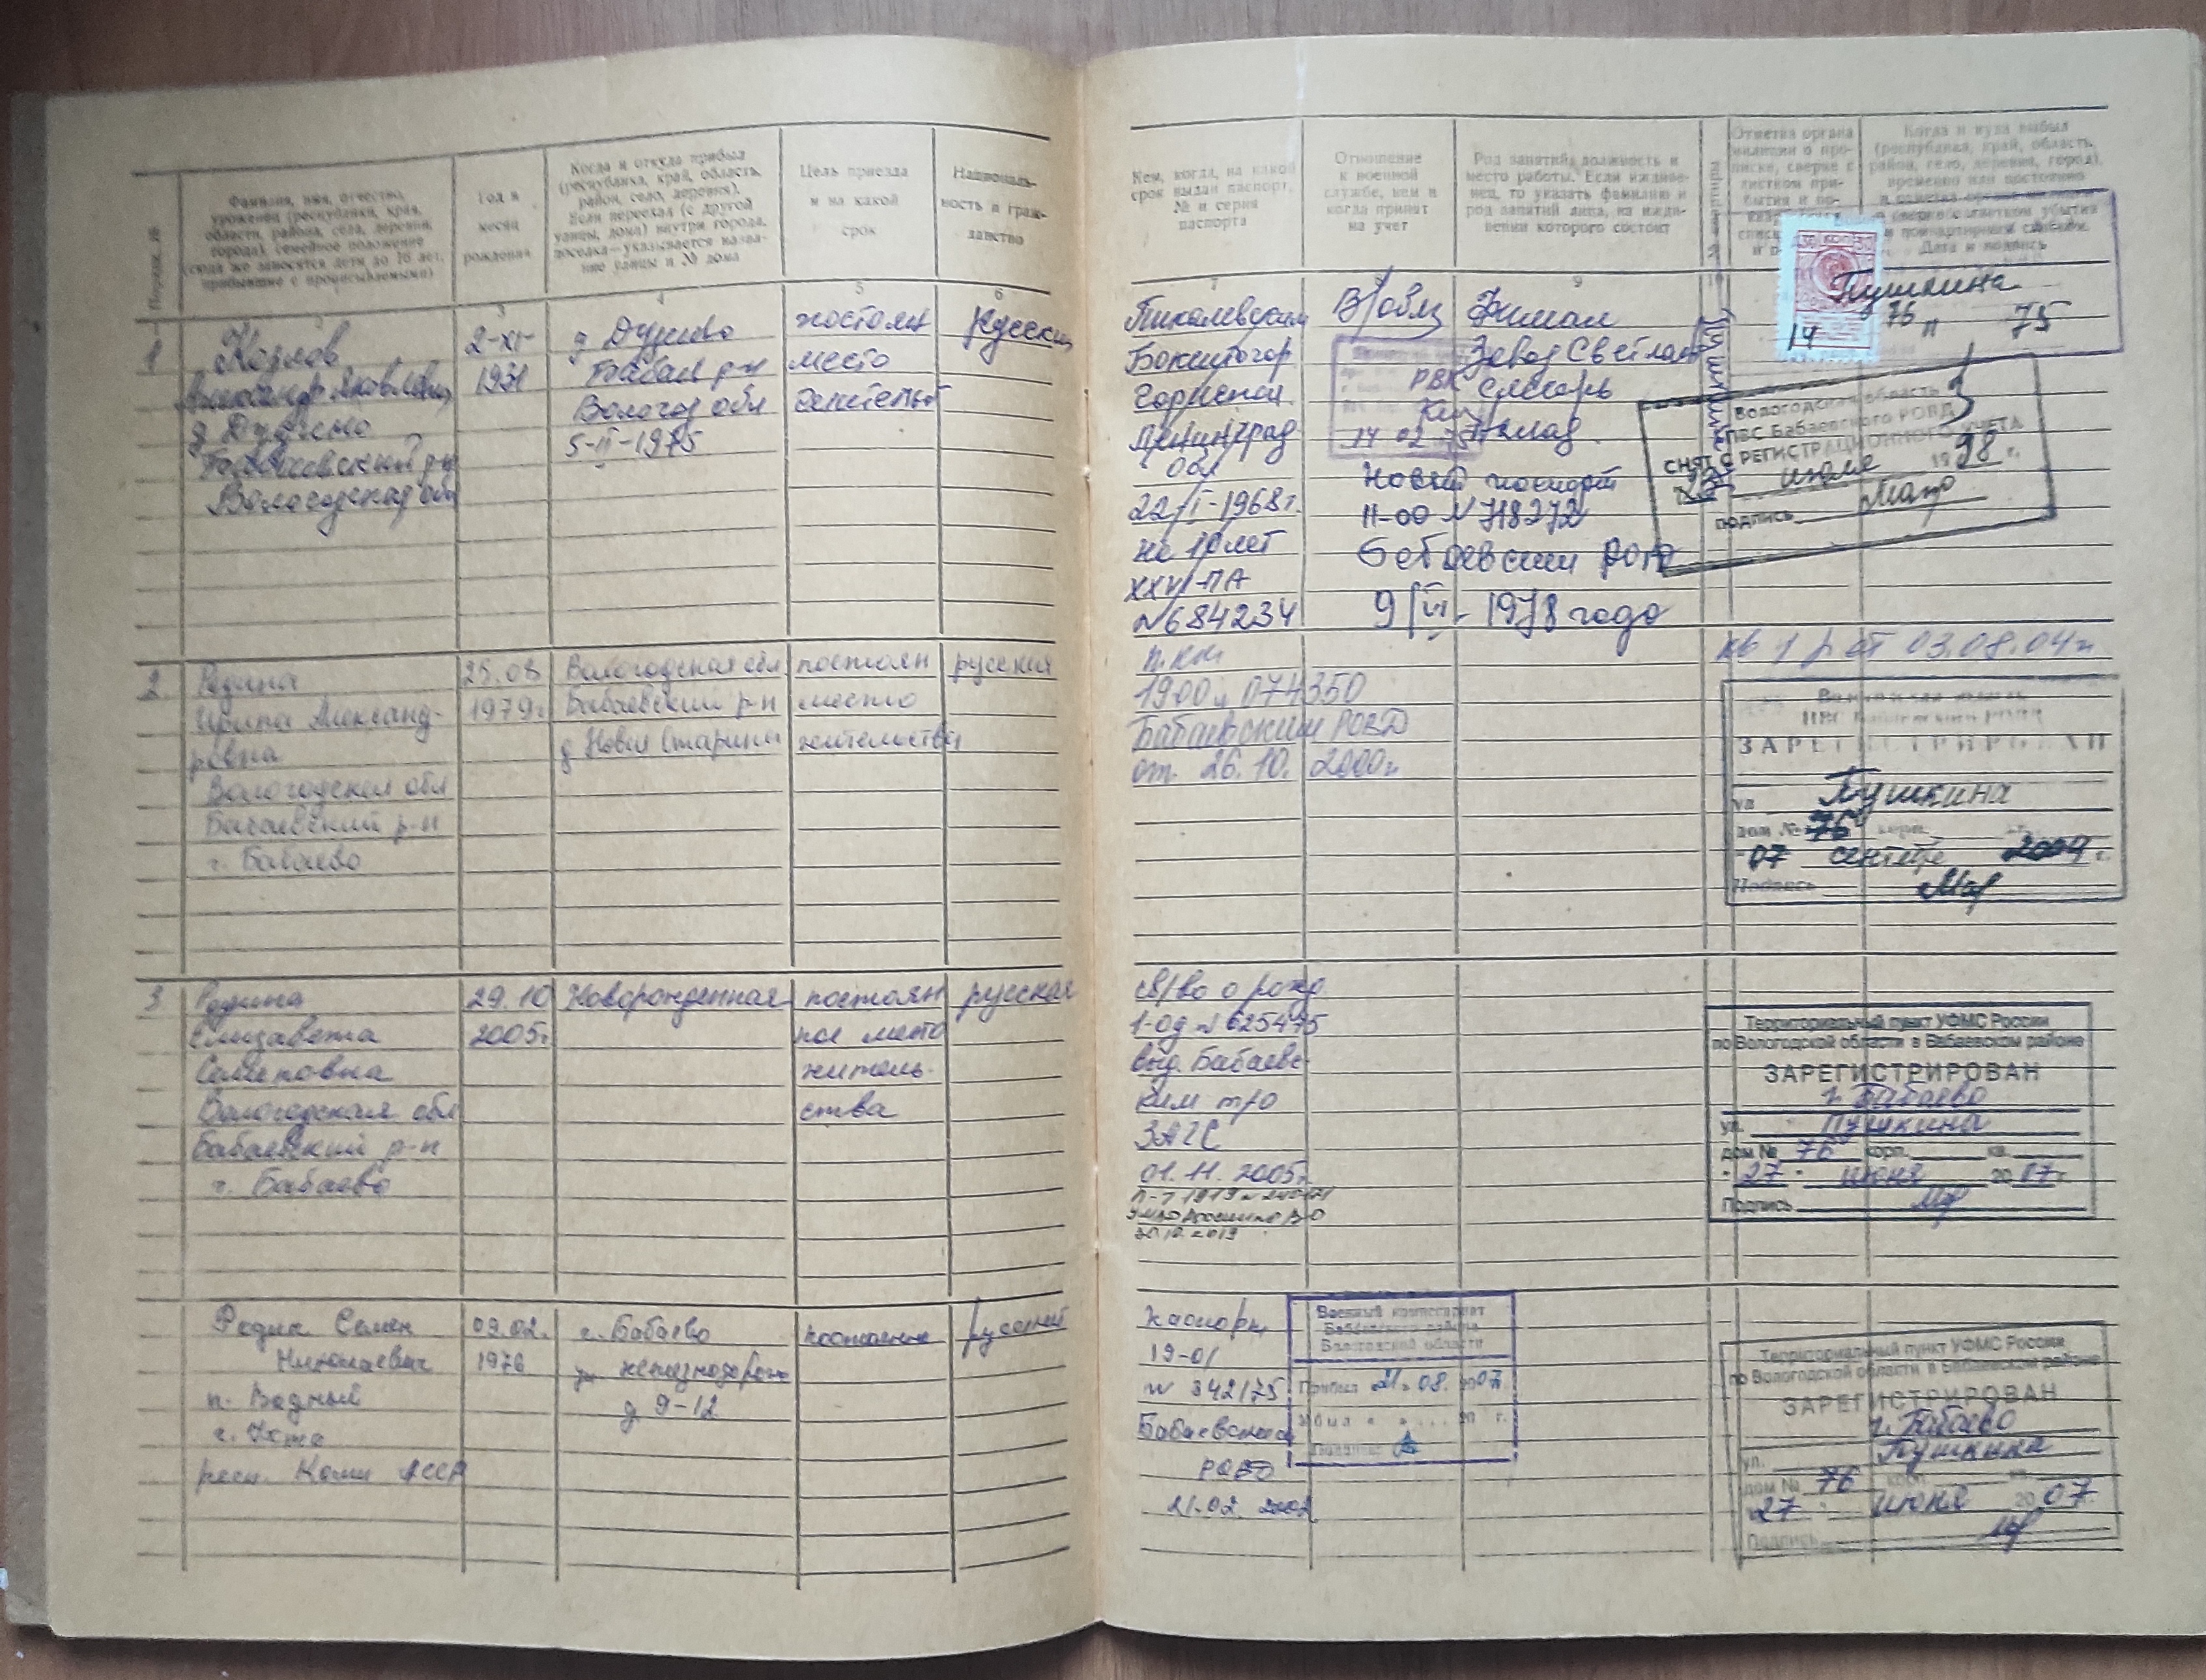 Порядк. №
Фамилия, имя, отчество,
уроженец (республики, края,
области, района, села, деревни,
города), семейное положение
(сюда же заносятся дети до 16 лет,
прибывшие с прописываемыми)
Год и
месяц
рождения
Когда и откуда прибыл
(республика, край, область,
район, село, деревня).
Если переехал (с другой
улицы, дома) внутри города,
поселка—указывается назва-
ние улицы и № дома
Цель приезда
и на какой
срок
Националь-
ность и граж-
данство
3
4
5
6
1
Козлов
Александр Яковлевич
Бабаевский р-н
Вологодская обл
2-XI-
1931
Бабаев р-н
Вологод обл
5-II-1975
постоян
место
жительст
Русский
2
Родина
Ирина Александ-
ровна
Вологодская обл
Бабаевский р-н
г. Бабаево
25.08
1979г
Вологодская обл
Бабаевский р-н
д Новая Старина
постоян
место
жительства
русская
3
Родина
Елизавета
Семеновна
Вологодская обл
Бабаевский р-н
г. Бабаево
29.10
2005г
Новорожденная
постоян
ное место
житель-
ства
русская
Родин Семен
Николаевич
п. Водный
г. Ухта
респ. Коми АССР
09.02.
1976
г. Бабаево
д 9-12
постоянно
русский
Кем, когда, на какой
срок выдан паспорт,
№ и серия
паспорта
Отношение
к военной
службе, кем и
когда принят
на учет
Род занятий, должность и
место работы. Если иждиве-
нец, то указать фамилию и
род занятий лица, на ижди-
вении которого состоит
Отметка органа
милиции о про-
писке, сверке с
листком при-
бытия и по-
Когда и куда выбыл
(республика, край, область,
район, село, деревня, город),
временно или постоянно
и отметка органа милиции
о сверке с листком убытия
и поквартирным списком.
Дата и подпись
7
8
9
Пикалевским
Бокситогор
Горисполк.
Ленинград
обл
22/I-1968г.
на 10 лет
XXVI-ПА
№684234
В/обяз
РВК
14 02 75
Филиал
Завод Светлана
слесарь
Новый паспорт
II-ОО №718272
Бабаевским РОВД
9/VI- 1978 года
Пушкина
76 п 75
14
Вологодская область
ПВС Бабаевского РОВД
СНЯТ С РЕГИСТРАЦИОННОГО УЧЕТА
июля 1998 г.
подпись
1900 № 074350
Бабаевским РОВД
от. 26.10. 2000г
03.08.04г
ПВС Бабаевского РОВД
ЗАРЕГИСТРИРОВАН
ул Пушкина
дом № 76 корп.
07 сентябр 2004 г.
Подпись
св/во о рожд
1-ОД № 625475
выд. Бабаевс-
ким т/о
ЗАГС
01.11.2005г
Территориальный пункт УФМС России
по Вологодской области в Бабаевском районе
ЗАРЕГИСТРИРОВАН
г. Бабаево
ул. Пушкина
дом № 76 корп. кв.
"27" июня 2007г.
Подпись
паспорт
19-01
№ 342175
Бабаевским
РОВД
21.02. 2002
Военный комиссариат
Бабаевского района
Вологодской области
Прибыл 21. 08. 2007г.
Убыл « » ... 20 г.
Подпись
Территориальный пункт УФМС России
по Вологодской области в Бабаевском районе
ЗАРЕГИСТРИРОВАН
г. Бабаево
ул. Пушкина
дом № 76 корп. кв.
27 июня 2007.
Подпись